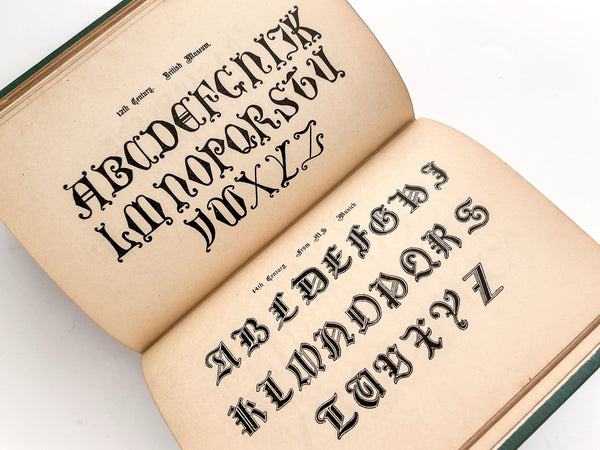 12th Century. British Museum.
ABCDEFGHIJK
LMNOPQRSTU
VWXYZ
14th Century. From MS. Munich.
ABCDEFGHI
KLMNOPQRS
TUVXYZ